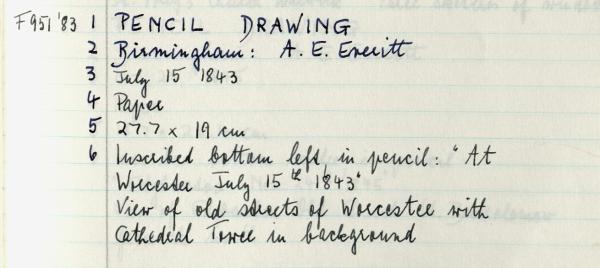 F951'83 1 PENCIL DRAWING
2 Birmingham: A. E. Everitt
3 July 15 1843
4 Paper
5 27.7 x 19 cm
6 Inscribed bottom left, in pencil: "At
Worcester July 15th 1843"
View of old streets of Worcester with
Cathedral Tower in background